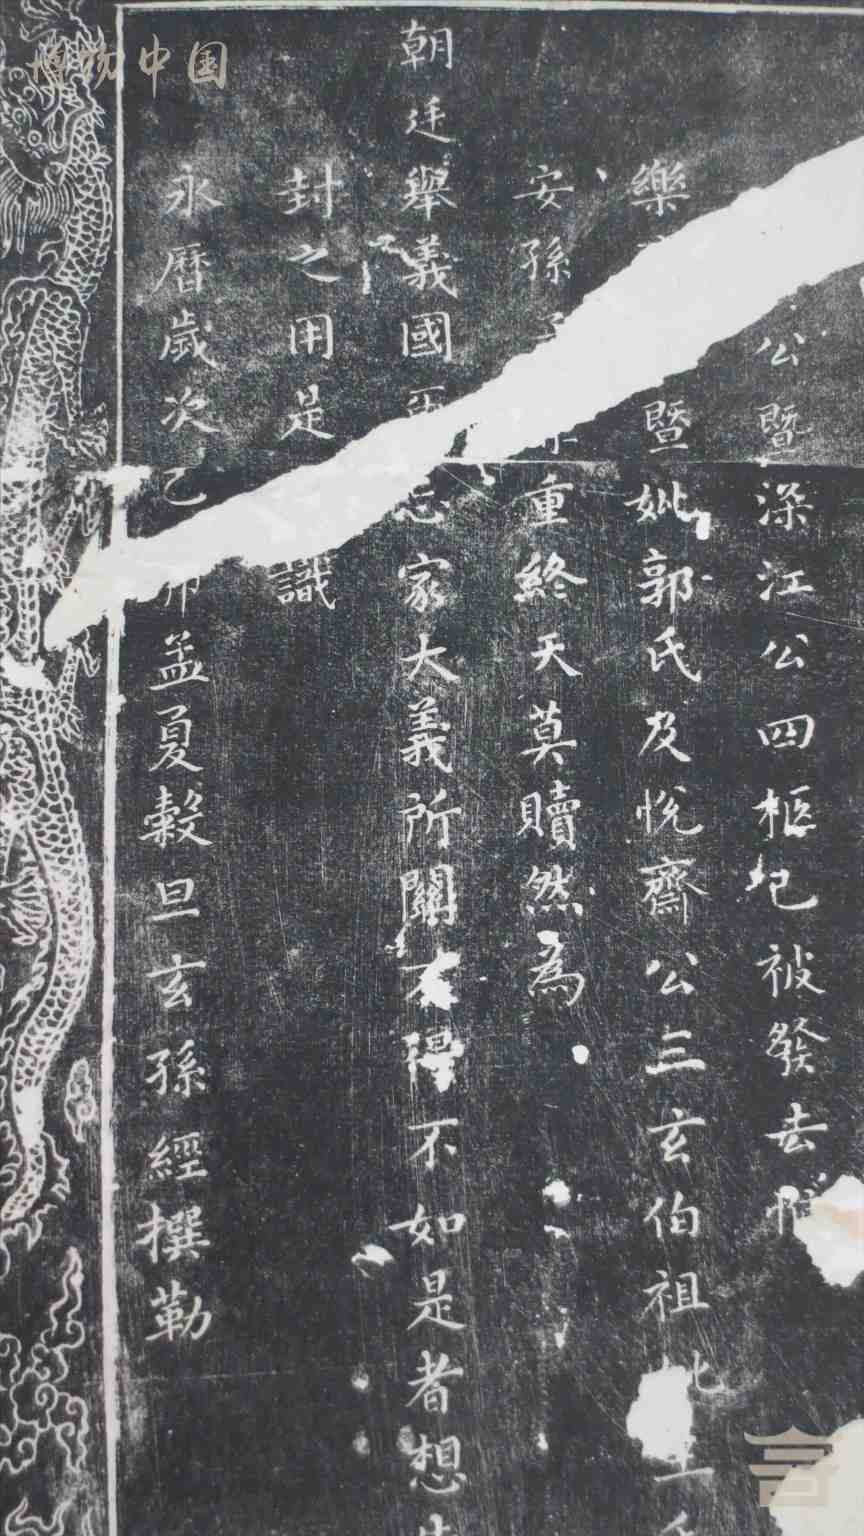 公暨深江公四柩圮被發去
樂暨妣郭氏及悅齋公三玄伯祖妣
安孫重終天莫贖然為
朝廷舉義國忘家大義所關有不得不如是者想
封之用是識
永曆歲次乙孟夏穀旦玄孫經撰勒
博物中国